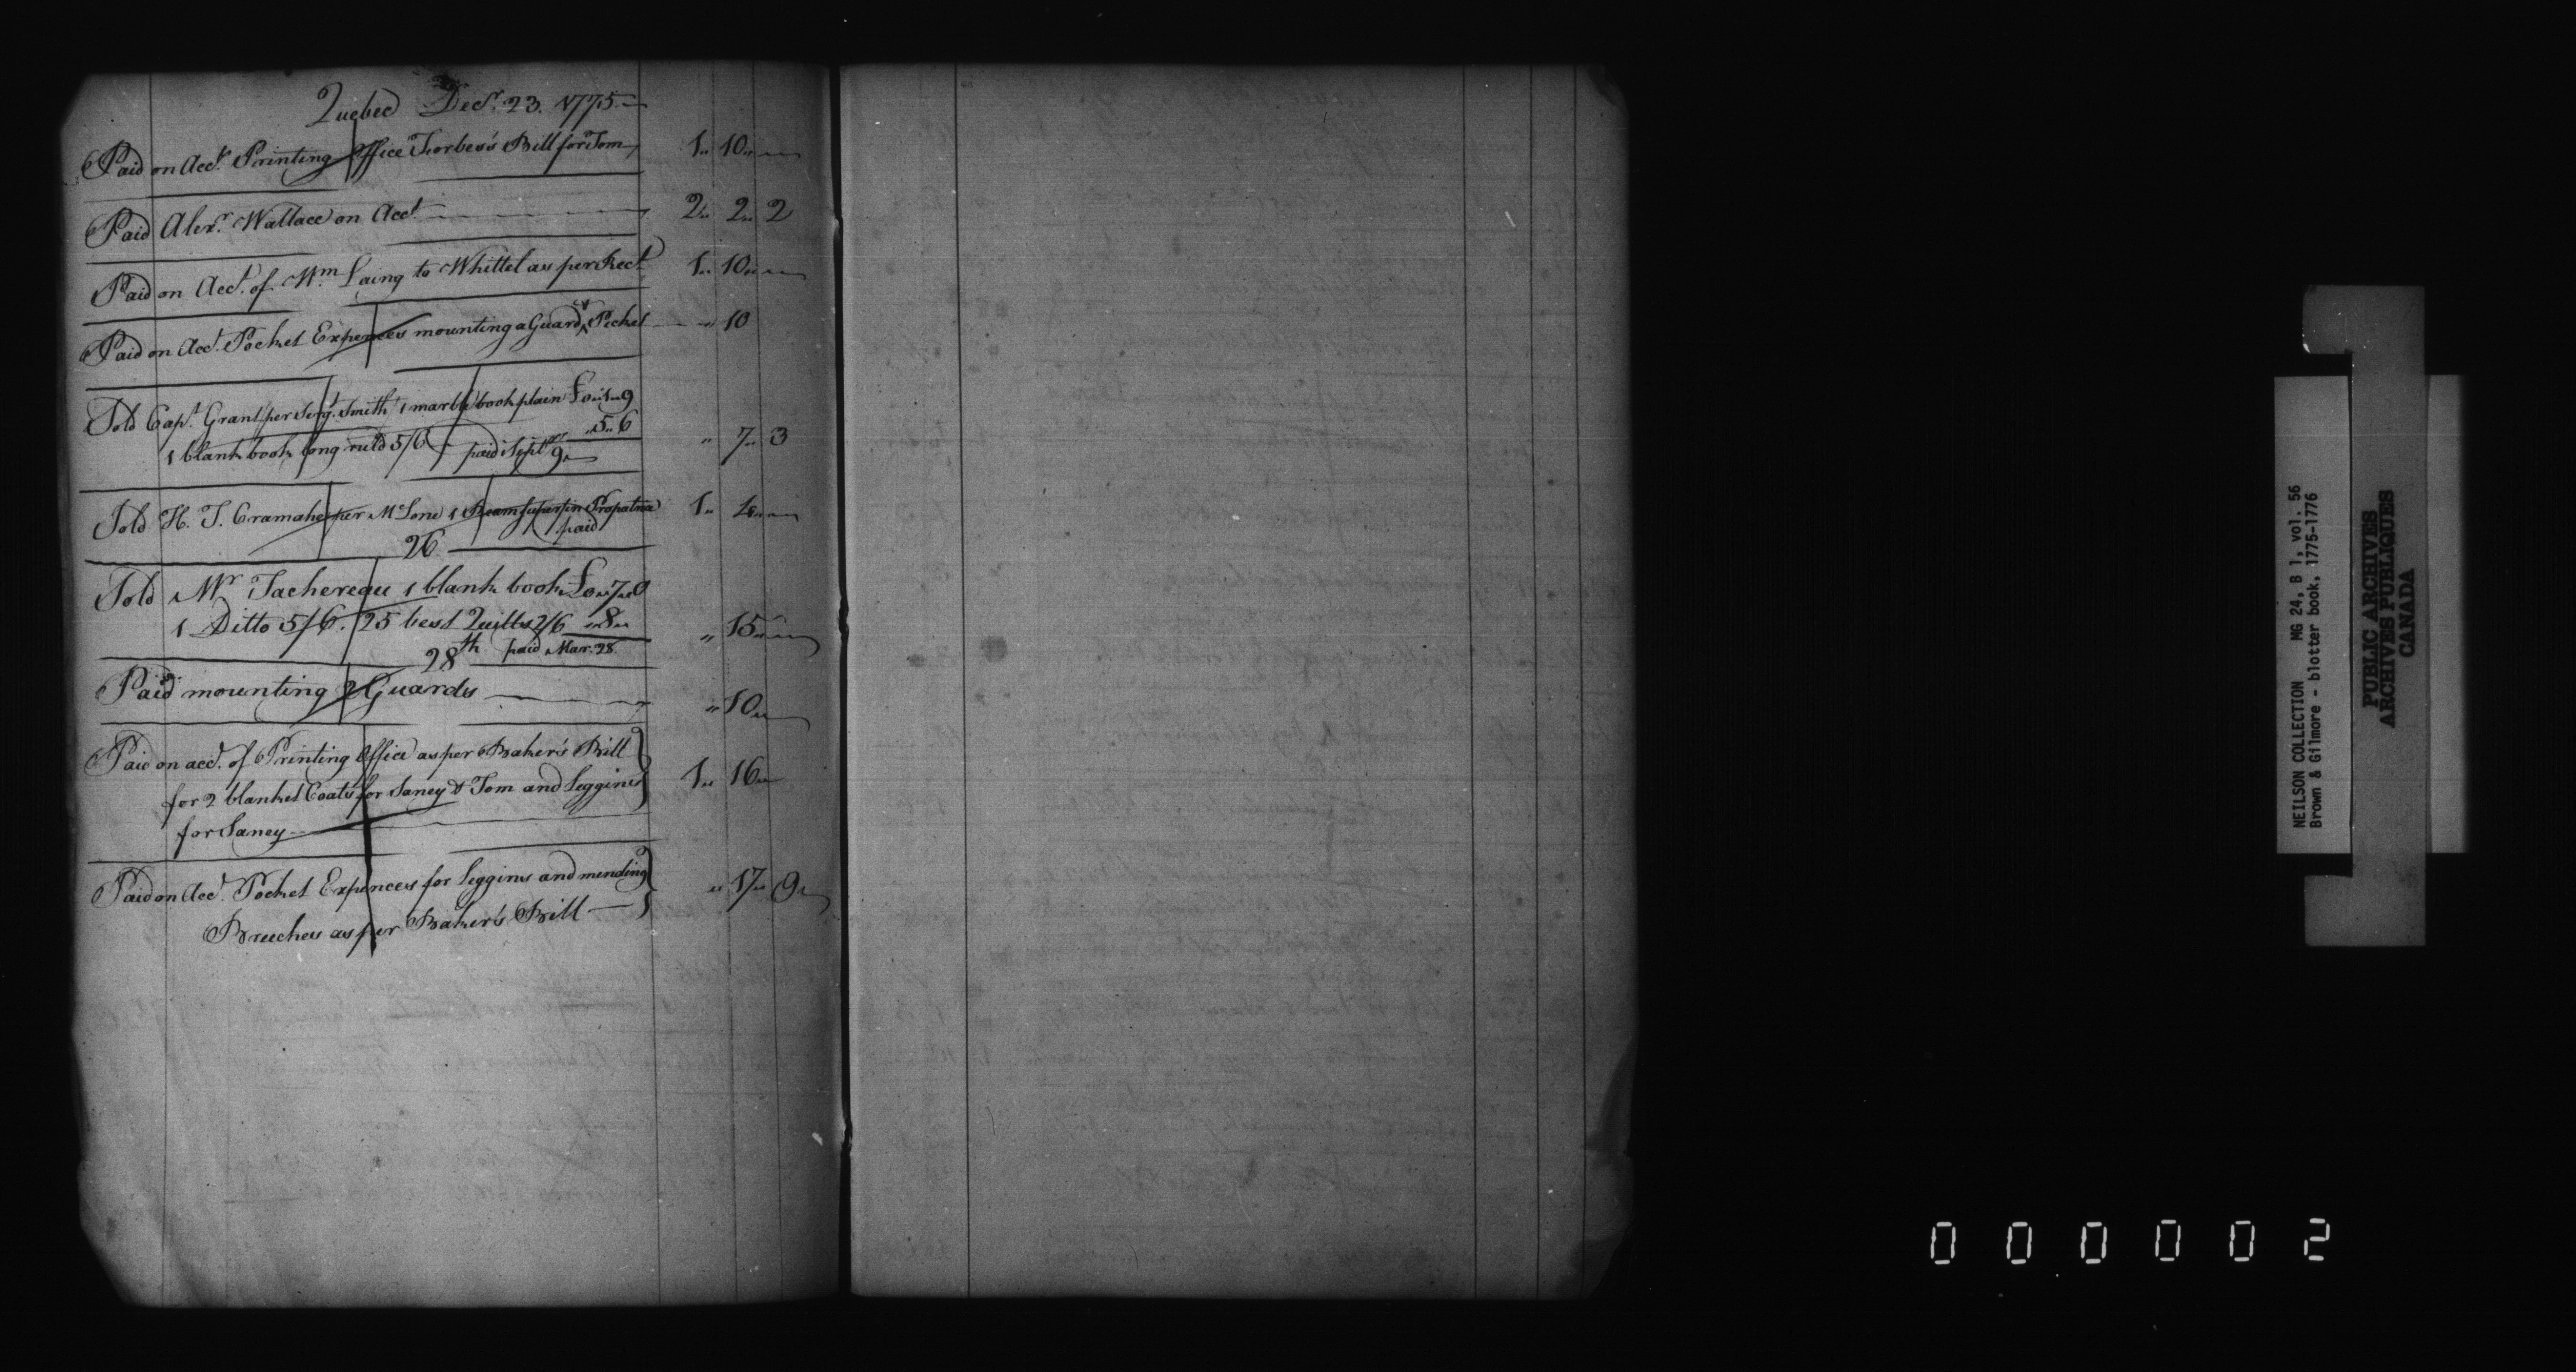 Quebec Decr. 23. 1775
Paid on Acct. Printing Office Forbes's Bill for Tom 1 10
Paid Alexr. Wallace on Acct 2 2 2
Paid on Acct. of Wm Laing to Whittel as per Rect 1 10
Paid on Acct. Pocket Expences mounting a Guard & Picket 10
Sold Capt. Grant per Sergt. Smith 1 marble book plain £0 1 9
5 6
1 blank book long ruld 5/6 paid Sept 9 7 3
Sold H. T. Cramahe per McLone 1 Ream superfin Propatria 1 4
paid
26
Sold Mr Tachereau 1 blank book £0 7 0
1 Ditto 5/6. 25 best Quills 2/6 8 15
28th paid Mar. 28
Paid mounting 2 Guards 10
Paid on acct. of Printing Office as per Baker's Bill
for 2 blanket Coats for Janey & Tom and Leggins 1 16
for Janey
Paid on Acct. Pocket Expences for Leggins and mending 17 9
Breeches as per Baker's Bill
NEILSON COLLECTION MG 24, B 1, vol. 56
Brown & Gilmore - blotter book, 1775-1776
PUBLIC ARCHIVES
ARCHIVES PUBLIQUES
CANADA
000002